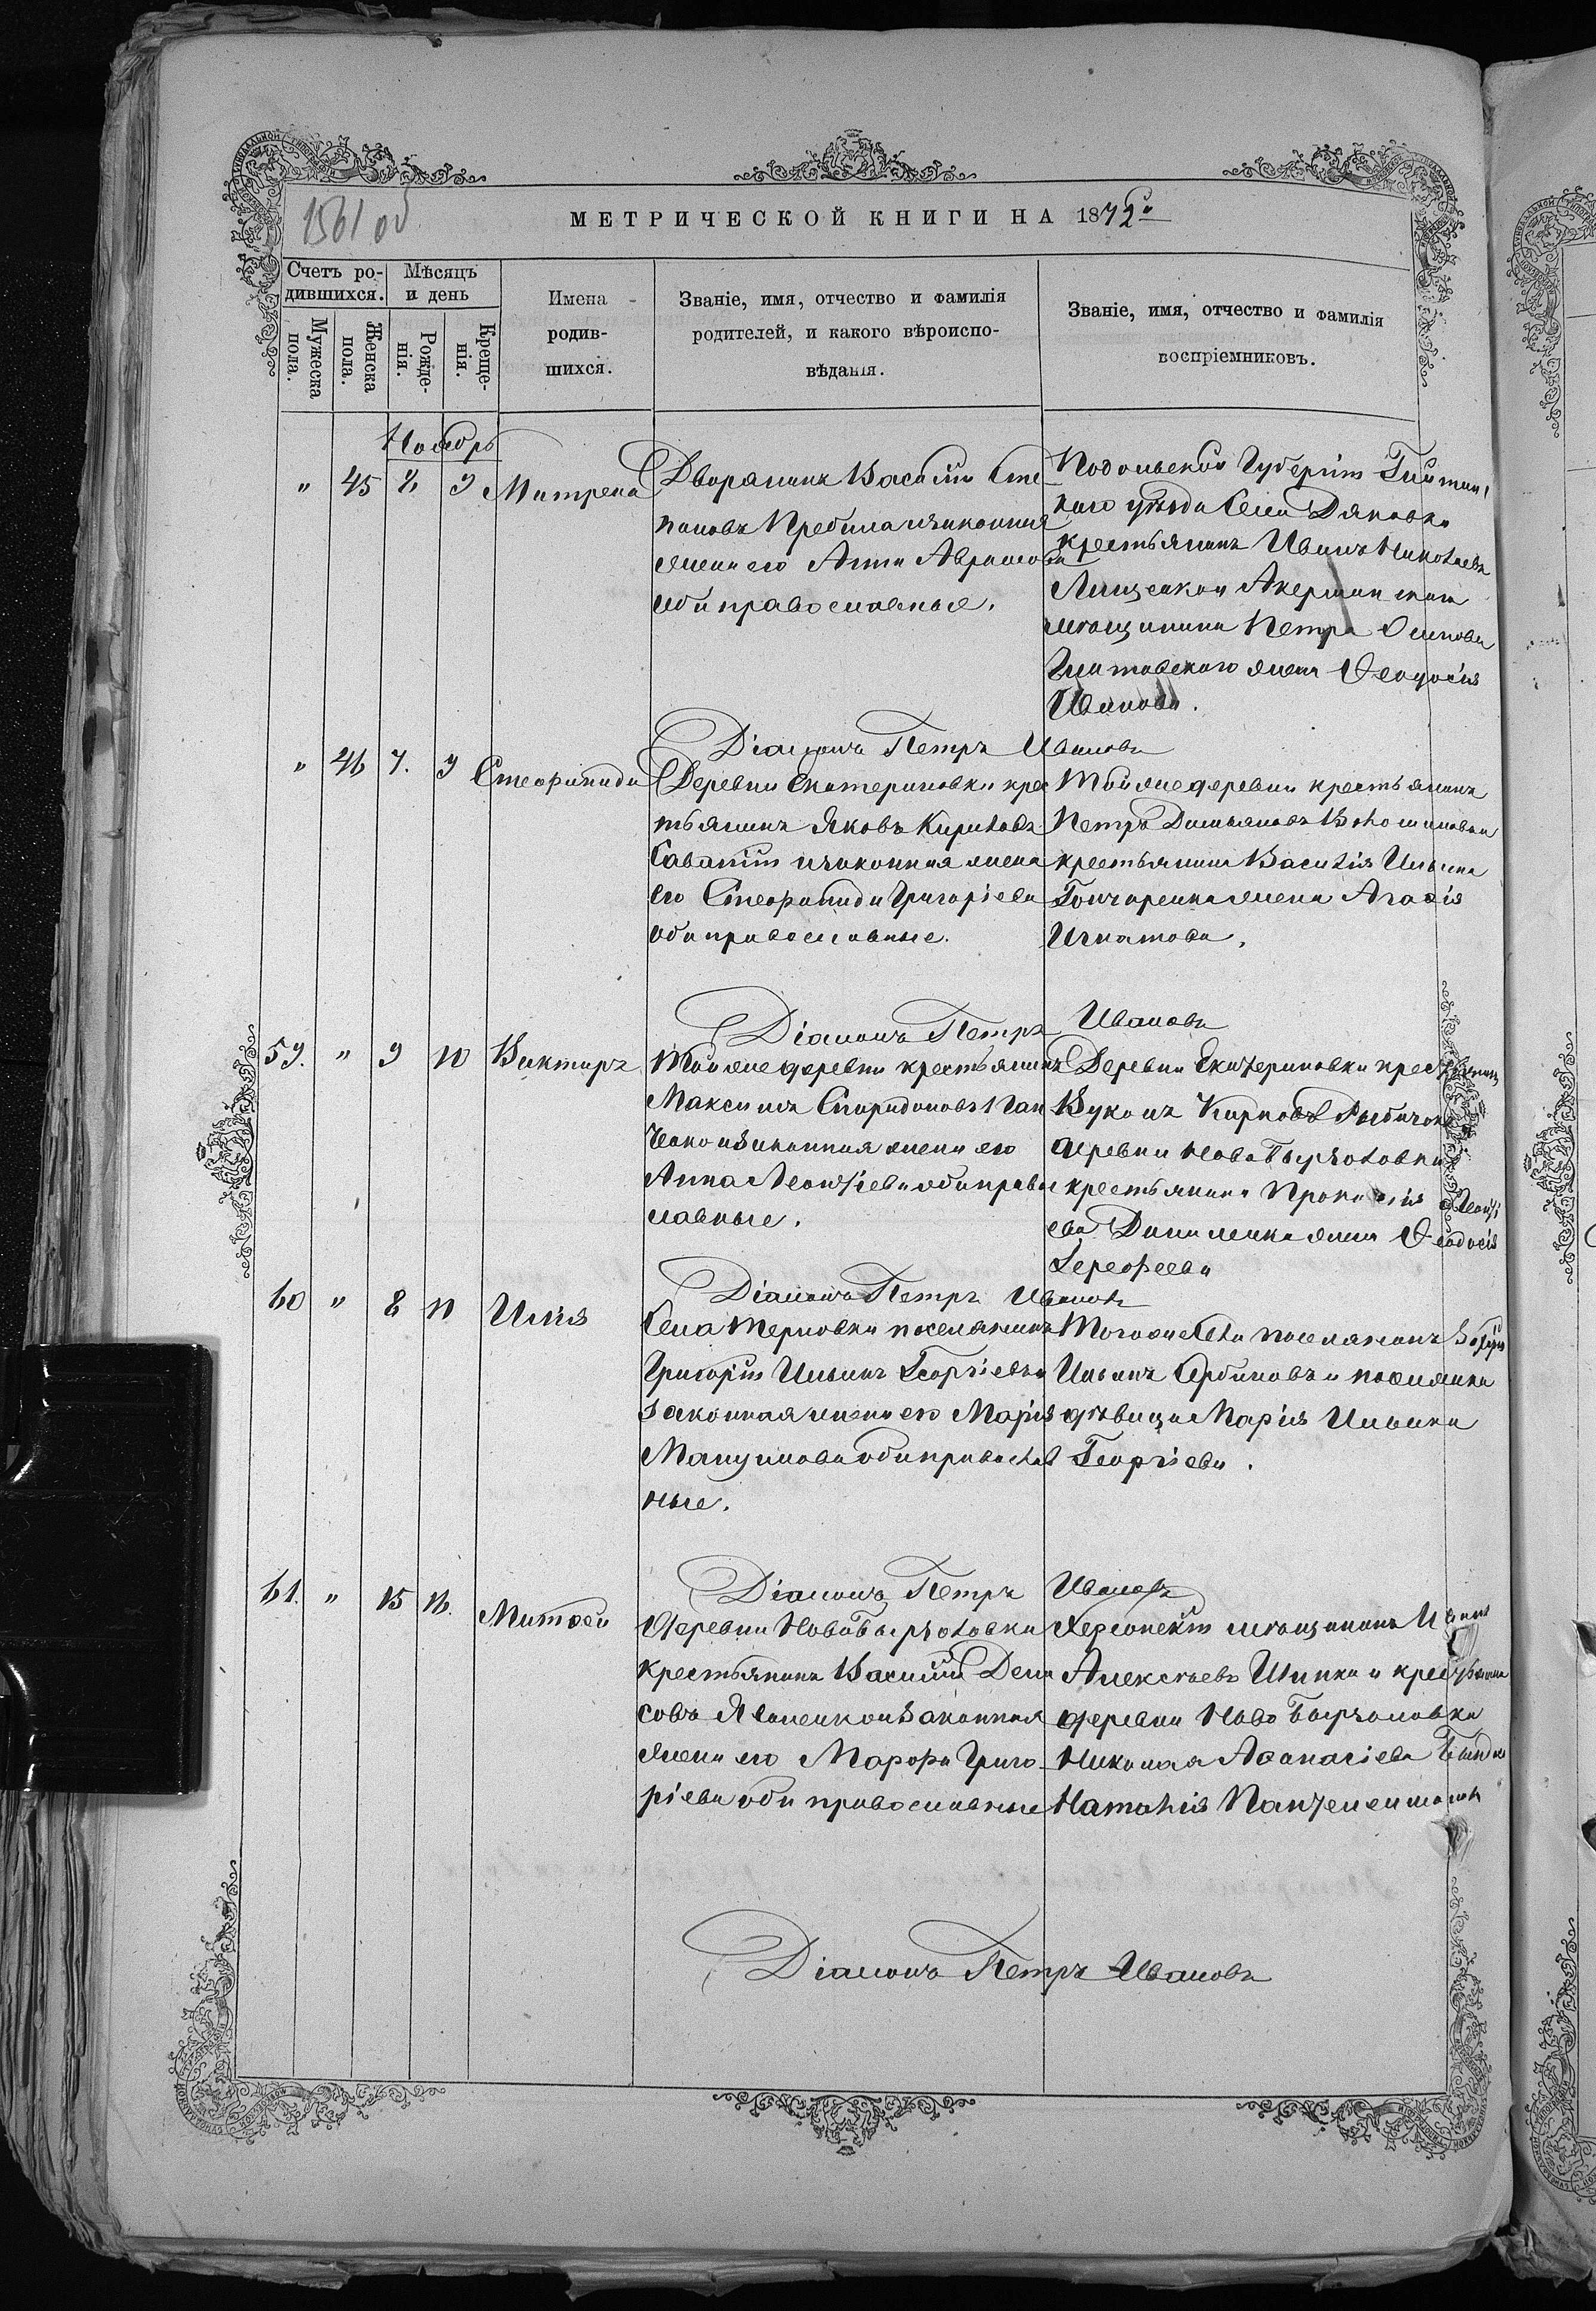 1561 об
МЕТРИЧЕСКОЙ КНИГИ НА 1872
Счетъ ро-
дившихся.
Мѣсяцъ
и день
Мужеска
пола.
Женска
пола.
Рожде-
нія.
Креще-
нія.
Имена
родив-
шихся.
Званіе, имя, отчество и фамилія
родителей, и какого вѣроиспо-
вѣданія.
Званіе, имя, отчество и фамилія
воспріемниковъ.
Ноябрь
" 45 2 9 Матрена
Дворянинъ Василій Сте
пановъ и законная
жена его Анна Аврамова
оба православные.
Подольской Губерніи
каго уѣзда Села Дяковки
крестьянинъ Иванъ Николаевъ
Лищенко и Акерманскаго
мѣщанина Петра Осипова
жена Ѳеодосія
Иванова.
Діаконъ Петръ Ивановъ
" 46 7. 9 Стеофанида
Деревни Екатериновки крес
тьянинъ Яковъ Кириловъ
и законная жена
его Стеофанида Григоріева
оба православные.
Той же деревни крестьянинъ
Петръ Дамьяновъ
крестьянина Василія Ильина
Гончаренка жена Агафія
Игнатова.
Діаконъ Петръ Ивановъ
59. " 9 10 Викторъ
Той же деревни крестьянинъ
Максимъ Спиридоновъ Ган
ченко и законная жена его
Анна Леонтіева оба право
славные.
Деревни Екатериновки крестьянинъ
Вуколъ Карповъ
деревни Ново Бырзоловки
крестьянина Прокофія Леонті
ева Даниленка жена Ѳеодосія
Ерофеева
Діаконъ Петръ Ивановъ
60 " 8 11 Илія
Села Терновки поселянинъ
Григорій Ильинъ Георгіевъ и
законная жена его Марія
Манулова оба православ
ные.
Того же Села поселянинъ
Ильинъ Арбиновъ и поселянка
дѣвица Марія Ильина
Георгіева.
Діаконъ Петръ Ивановъ
61. " 15 16. Матѳей
Деревни Ново Бырзоловки
крестьянинъ Василій Дени
совъ и законная
жена его Марфа Григо
ріева оба православные
Херсонскій мѣщанинъ Иванъ
Алексѣевъ Шинка и крестьянина
деревни Ново Бырзоловки
Николая Аѳанасіева
Наталія Пантелеимонова
Діаконъ Петръ Ивановъ